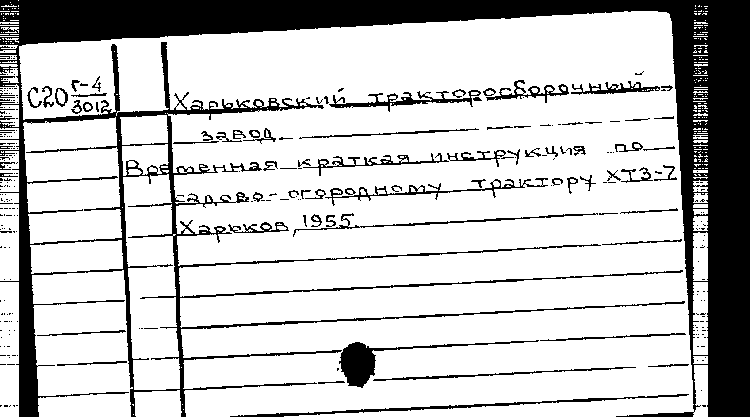 С20 г-4
3012
Харьковский тракторосборочный
завод.
Временная краткая инструкция по
садово-огородному трактору ХТЗ-7
Харьков, 1955.